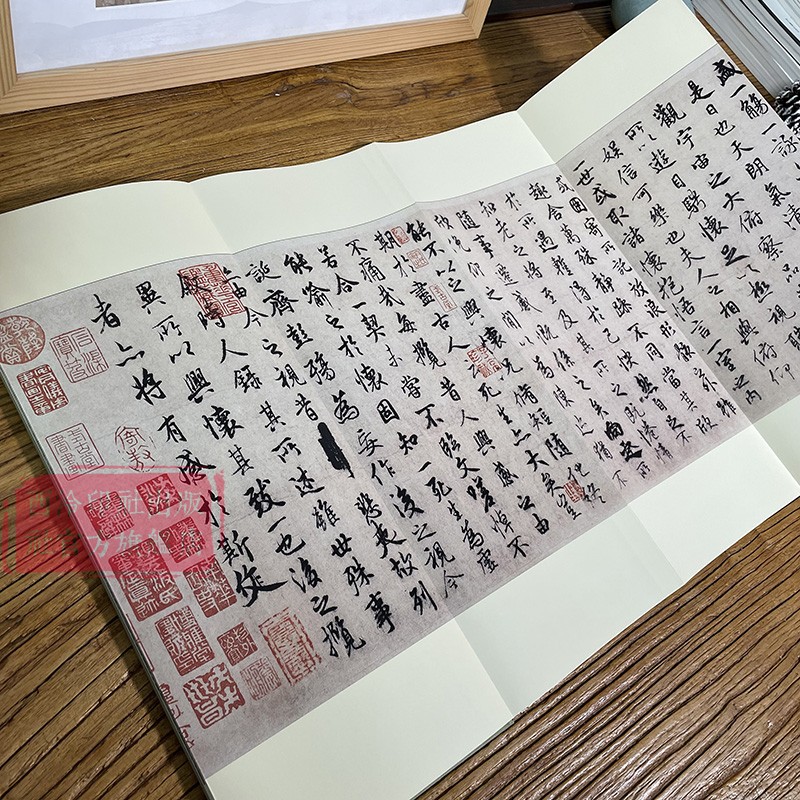 盛一觴一詠
是日也天朗氣清
觀宇宙之大俯察品
所以遊目騁懷足以極視
娛信可樂也夫人之相與俯仰
一世或取諸懷抱悟言一室之內
或因寄所託放浪形骸之外雖
趣舍萬殊靜躁不同當其欣
於所遇蹔得於己怏然自足不
知老之將至及其所之既惓情
隨事遷感慨係之矣向之所
欣俛仰之閒以為陳迹猶不
能不以之興懷況脩短隨化終
期於盡古人云死生亦大矣豈
不痛哉每攬昔人興感之由
若合一契未嘗不臨文嗟悼不
能喻之於懷固知一死生為虛
誕齊彭殤為妄作後之視今
亦由今之視昔悲夫故列
敘時人錄其所述雖世殊事
異所以興懷其致一也後之攬
者亦將有感於斯文
泠印社出版
方旗舰